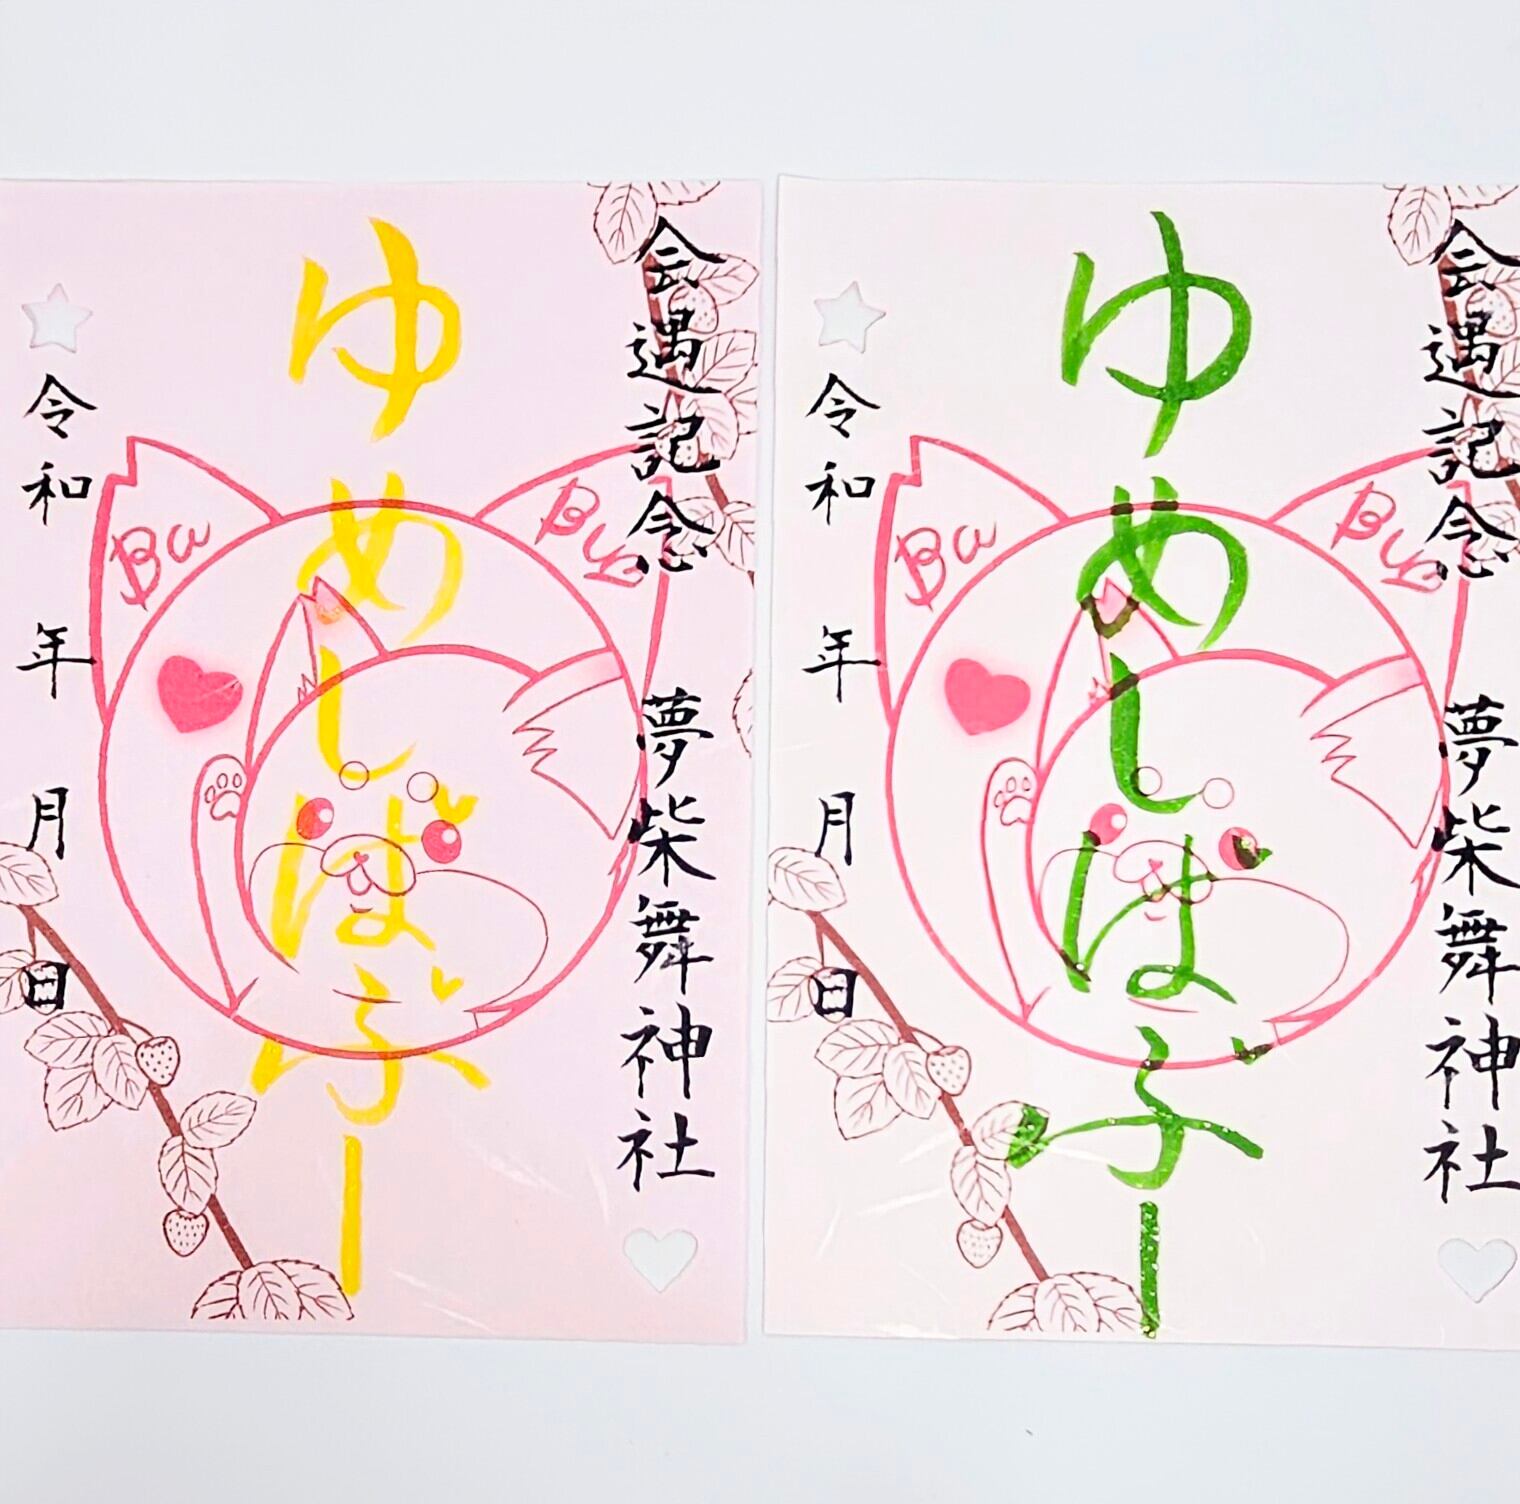 会遇記念　夢柴舞神社
ゆめしばぶー
Ba
令和　年　月　日
会遇記念　夢柴舞神社
ゆめしばぶー
Ba
令和　年　月　日